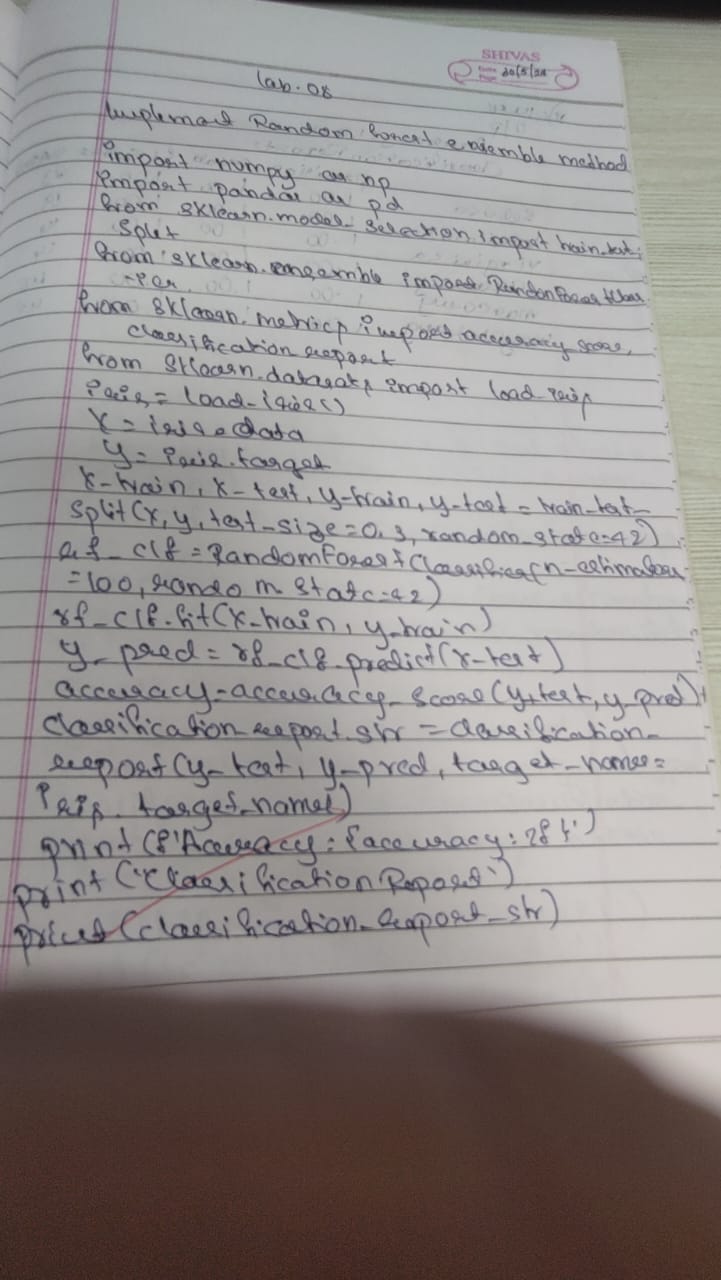 SHIVAS
Date 20/5/24
Page
Lab. 08
Implement Random forest ensemble method
import numpy as np
import pandas as pd
from sklearn.model_selection import train_test_
split
from sklearn.ensemble import RandomForestClass
ifier
from sklearn.metrics import accuracy_score,
classification_report
from sklearn.datasets import load_iris
iris = load_iris()
X = iris.data
y = iris.target
X_train, X_test, y_train, y_test = train_test_
split(X, y, test_size=0.3, random_state=42)
rf_clf = RandomForestClassifier(n_estimators
=100, random_state=42)
rf_clf.fit(X_train, y_train)
y_pred = rf_clf.predict(X_test)
accuracy=accuracy_score(y_test, y_pred)
classification_report_str = classification_
report(y_test, y_pred, target_names=
iris.target_names)
print(f'Accuracy: {accuracy:.2f}')
print('Classification Report')
print(classification_report_str)